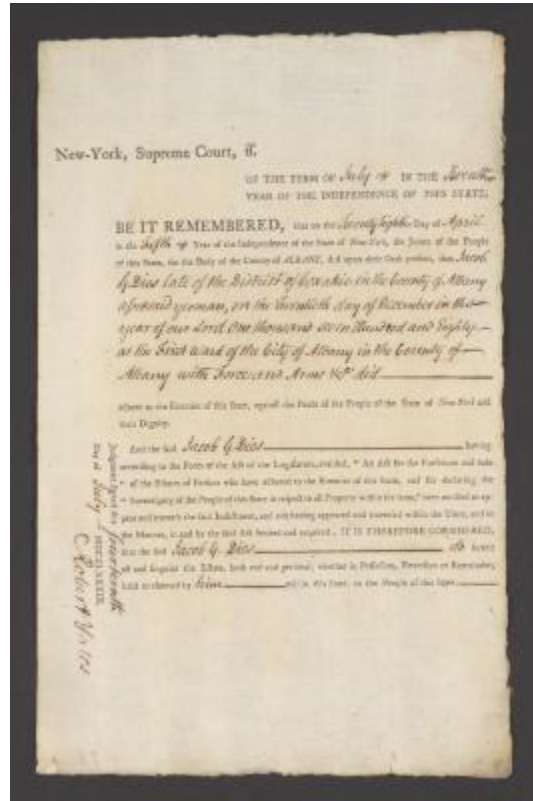 New-York, Supreme Court, ff.
OF THE TERM OF July IN THE Seventh
YEAR OF THE INDEPENDENCE OF THIS STATE.
BE IT REMEMBERED, that on the Day of April
in the fifth Year of the Independence of the State of New-York, the Jurors of the People
of this State, for the Body of the County of ALBANY, did upon their Oath present, that Jacob
G Dies late of the District of Coxakie in the County of Albany
yeoman, on the twentieth day of December in the
year of our Lord One thousand seven Hundred and Eighty
at the first ward of the City of Albany in the County of
Albany with force and Arms &c did
adhere to the Enemies of this State, against the Peace of the People of the State of New-York and
their Dignity.
And the said Jacob G Dies having
according to the Form of the Act of the Legislature, entitled, "An Act for the Forfeiture and Sale
"of the Estates of Persons who have adhered to the Enemies of this State, and for declaring the
"Sovereignty of the People of this State in respect to all Property within the same," been notified to ap-
pear and traverse the said Indictment, and not having appeared and traversed within the Time, and in
the Manner, in and by the said Act limited and required, IT IS THEREFORE CONSIDERED,
that the said Jacob G. Dies do forfeit
all and singular the Estate, both real and personal, whether in Possession, Reversion or Remainder,
held or claimed by him within this State, to the People of this State.
Judgment signed this fourteenth
Day of July MDCCLXXXIII.
Robert Yates